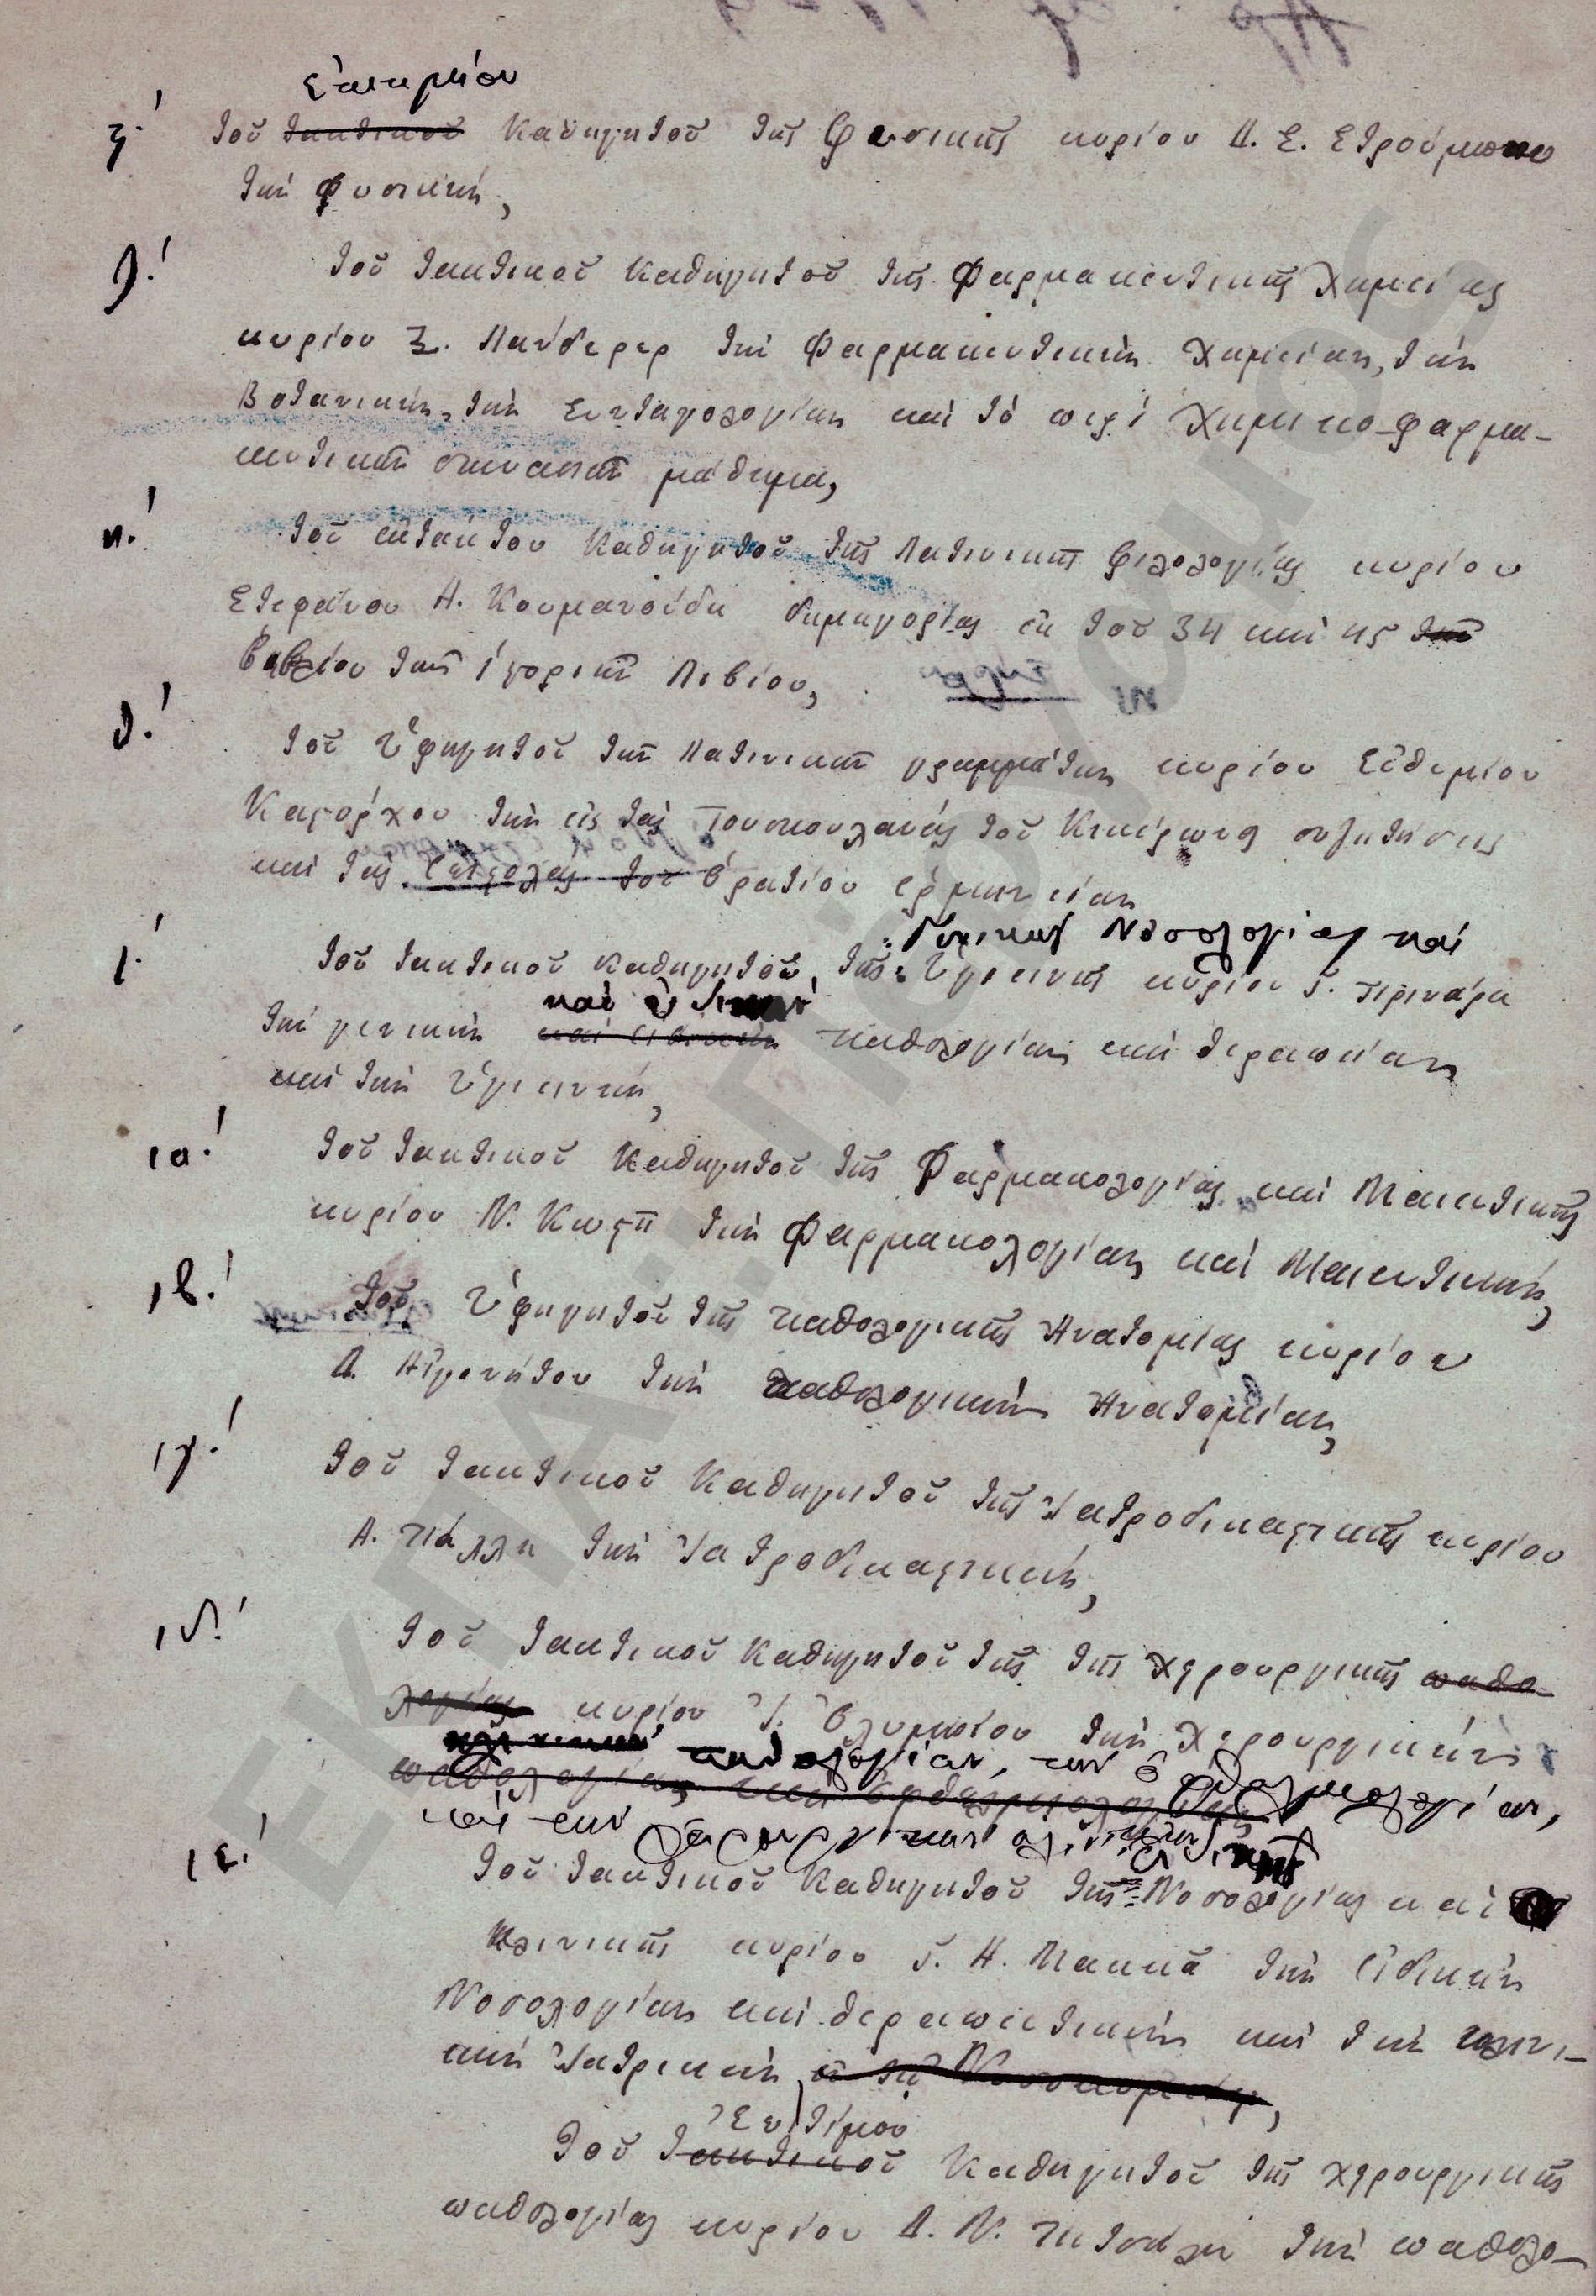 Ἐπιτιμίου
ϛ΄. τοῦ τακτικοῦ Καθηγητοῦ τῆς Φυσικῆς κυρίου Δ. Σ. Στρούμπου
τὴν Φυσικὴν,
ζ΄. τοῦ τακτικοῦ Καθηγητοῦ τῆς Φαρμακευτικῆς Χημείας
κυρίου Ξ. Λάνδερερ τὴν Φαρμακευτικὴν Χημείαν, τὴν
Βοτανικὴν, τὴν Συνταγολογίαν καὶ τὸ περὶ Χημικο-φαρμα-
κευτικῶν σκευασιῶν μάθημα,
η΄. τοῦ ἐκτάκτου Καθηγητοῦ τῆς Λατινικῆς Φιλολογίας κυρίου
Στεφάνου Α. Κουμανούδη δημηγορίας ἐκ τοῦ 34 καὶ 45 τοῦ
βιβλίου τῶν ἱστορικῶν Λιβίου,
θ΄. τοῦ Ὑφηγητοῦ τῶν Λατινικῶν γραμμάτων κυρίου Εὐθυμίου
Καστόρχου τὴν εἰς τὰς Τουσκουλανὰς τοῦ Κικέρωνος συζητήσεις
καὶ τὰς ἐπιστολὰς τοῦ Ὁρατίου ἑρμηνείαν
Γενικῆς Νοσολογίας καὶ
ι΄. τοῦ τακτικοῦ Καθηγητοῦ τῆς Ὑγιεινῆς κυρίου Γ. Πρινάρη
καὶ εἰδικὴν
τὴν γενικὴν καὶ εἰδικὴν παθολογίαν καὶ θεραπείαν
καὶ τὴν Ὑγιεινὴν,
ια΄. τοῦ τακτικοῦ Καθηγητοῦ τῆς Φαρμακολογίας καὶ Μαιευτικῆς
κυρίου Ν. Κωστῆ τὴν Φαρμακολογίαν καὶ Μαιευτικὴν,
ιβ΄. τοῦ Ὑφηγητοῦ τῆς παθολογικῆς Ἀνατομίας κυρίου
Δ. Αἰγινήτου τὴν παθολογικὴν Ἀνατομίαν,
ιγ΄. τοῦ τακτικοῦ Καθηγητοῦ τῆς Ἰατροδικαστικῆς κυρίου
Α. Πάλλη τὴν Ἰατροδικαστικὴν,
ιδ΄. τοῦ τακτικοῦ Καθηγητοῦ τῆς τῆς Χειρουργικῆς παθο-
λογίας κυρίου Ἰ. Ὀλυμπίου τὴν Χειρουργικὴν
κλινικὴν παθολογίαν, τὴν ὀφθαλμολογίαν,
παθολογίαν καὶ ὀφθαλμολογίαν
καὶ τὴν χειρουργικὴν κλινικὴν,
Εἰδικῆς
ιε΄. τοῦ τακτικοῦ Καθηγητοῦ τῆς Νοσολογίας καὶ
Κλινικῆς κυρίου Γ. Α. Μακκᾶ τὴν Εἰδικὴν
Νοσολογίαν καὶ θεραπευτικὴν καὶ τὴν κλινι-
κὴν Ἰατρικὴν ἐν τῷ Νοσοκομείῳ,
Ἐπιτίμου
τοῦ τακτικοῦ Καθηγητοῦ τῆς χειρουργικῆς
παθολογίας κυρίου Δ. Ν. τὴν παθολο-
ΕΚΠΑ - ΠΕΡΓΑΜΟΣ